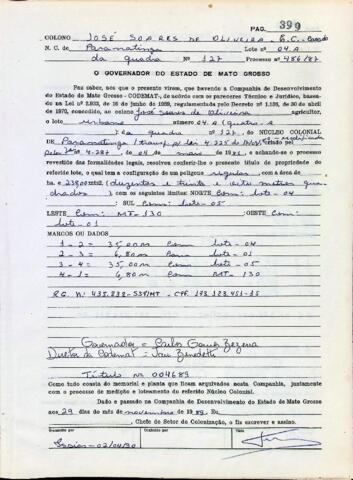 PAG. 399
COLONO JOSÉ SOARES DE OLIVEIRA, B.C. - Casado
N. C. de Paranatinga Lote nº 04.A
da quadra Nº 127 Processo nº 486/87
O GOVERNADOR DO ESTADO DE MATO GROSSO
Faz saber, aos que o presente virem, que havendo a Companhia de Desenvolvimento
do Estado de Mato Grosso - CODEMAT, de acordo com os pareceres Técnico e Jurídico, basea-
do na Lei nº 2.933, de 16 de junho de 1969, regulamentada pelo Decreto nº 1.138, de 30 de abril
de 1970, concedido, ao colono José Soares de Oliveira agricultor,
o lote urbano número 04.A (Quatro-A
) da quadra nº 127, do NÚCLEO COLONIAL
de Paranatinga criado pela
4.287, de 04 de maio de 1981, e achando-se o processo
revestido das formalidades legais, resolveu conferir-lhe o presente título de propriedade do
referido lote, o qual tem a configuração de um polígono regular com a área de
ha. e 238,00 mts2 (duzentos e trinta e oito metros qua-
drados) com os seguintes limites: NORTE Com: lote-04
; SUL Com: lote-05
LESTE Com: MT-130 ; OESTE Com:
lote-01
MARCOS OU DADOS
1 - 2 = 35,00m Com lote-04
2 - 3 = 6,80m Com lote-01
3 - 4 = 35,00m Com lote-05
4 - 1 = 6,80m Com MT-130
Governador =
Diretor da Codemat =
Título Nº 004689
Como tudo consta do memorial e planta que ficam arquivados nesta Companhia, juntamente
com o processo de medição e loteamento do referido Núcleo Colonial.
Dado e passado na Companhia de Desenvolvimento do Estado de Mato Grosso
aos 29 dias do mês de novembro de 1989. Eu,
, Chefe do Setor de Colonização, o fiz escrever e assino.